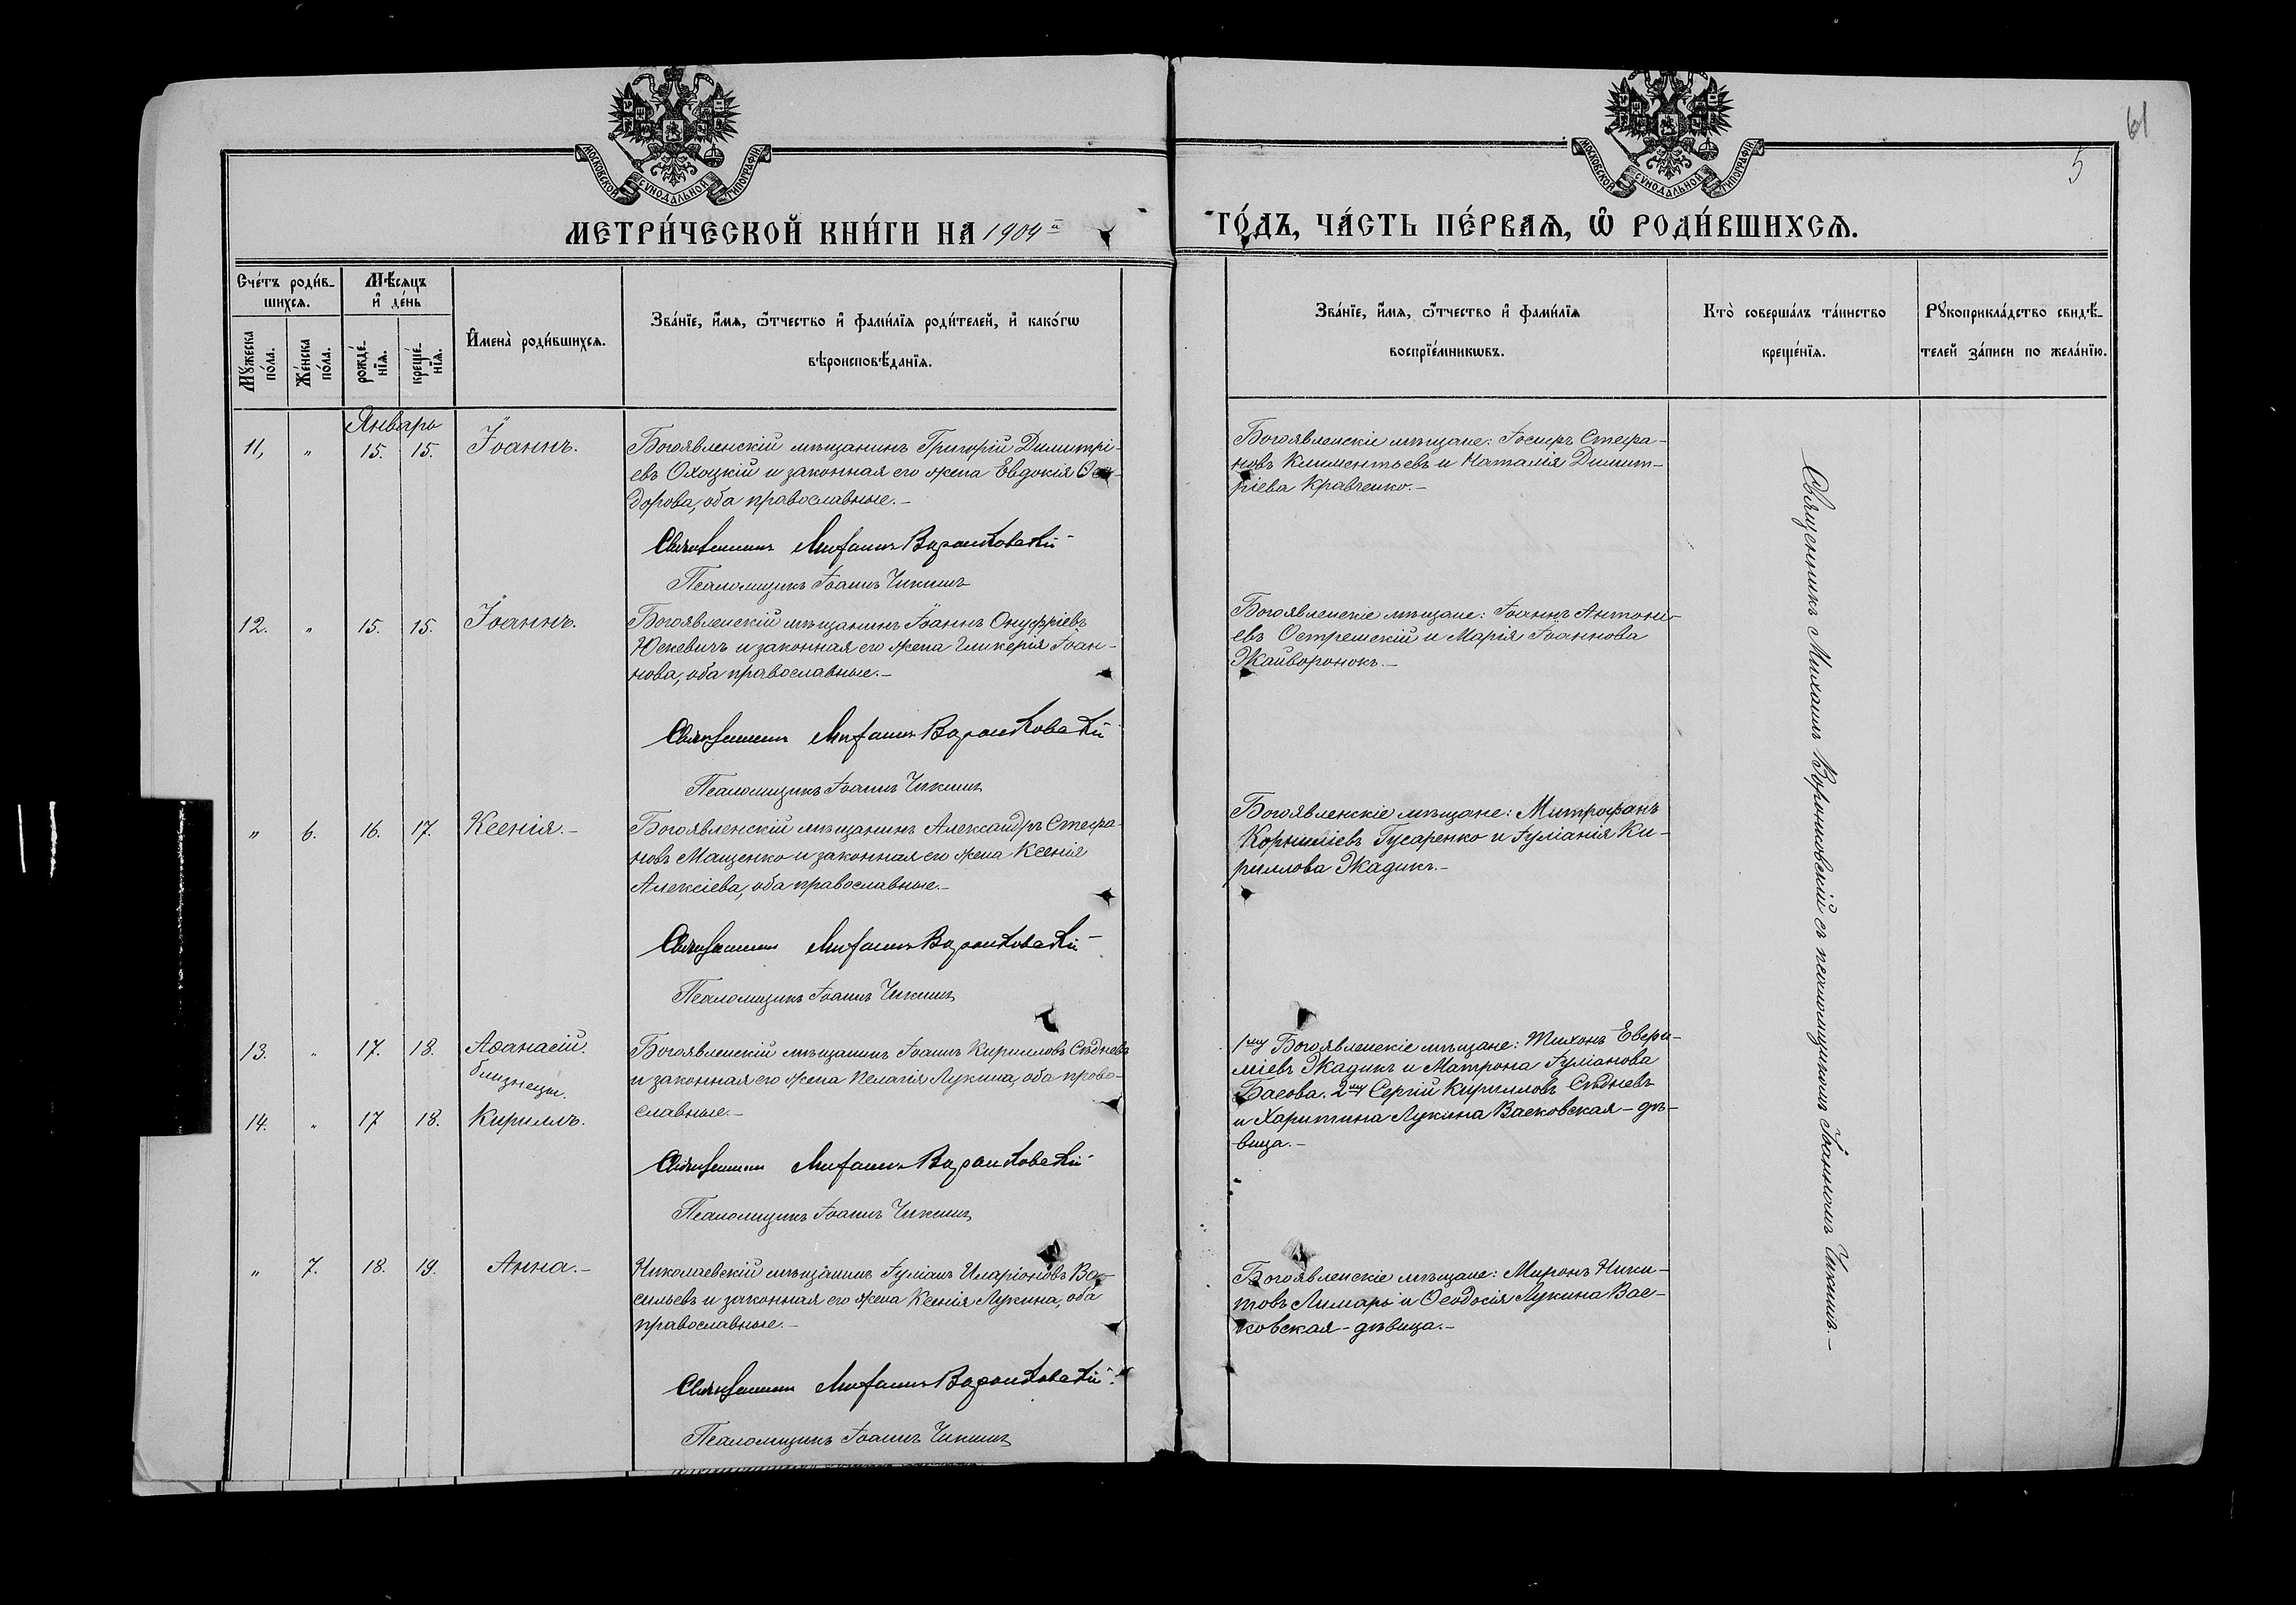 МОСКОВСКОЙ СѴНОДАЛЬНОЙ ТИПОГРАФІИ
МОСКОВСКОЙ СѴНОДАЛЬНОЙ ТИПОГРАФІИ
61
5
МЕТРИ́ЧЕСКОЙ КНИ́ГИ НА 1904й
ГО́ДЪ, ЧА́СТЬ ПЕ́РВАѦ, Ѡ҆ РОДИ́ВШИХСѦ.
Сче́тъ роди́в-
шихсѧ.
Мꙋ́жеска по́ла.
Же́нска по́ла.
Мѣ́сѧцъ
и҆ де́нь
рожде́-
нїѧ.
креще́-
нїѧ.
И҆мена̀ роди́вшихсѧ.
Зва́нїе, и҆́мѧ, ѻ҆́тчество и҆ фами́лїѧ роди́телей, и҆ како́гѡ
вѣроисповѣ́данїѧ.
Зва́нїе, и҆́мѧ, ѻ҆́тчество и҆ фами́лїѧ
воспрїе́мникѡвъ.
Кто̀ соверша́лъ та́инство
креще́нїѧ.
Рꙋкоприкла́дство свидѣ́-
телей за́писи по жела́нїю.
Январь
11, " 15. 15. Іоаннъ.
Богоявленскій мѣщанинъ Григорій Димитрі-
евъ Охоцкій и законная его жена Евдокія Ѳео-
дорова, оба православные.-
Священникъ Михаилъ Вороновскій
Псаломщикъ Іоаннъ Чикишъ
Богоявленскіе мѣщане: Іосифъ Стефа-
новъ Климентьевъ и Наталія Димит-
ріева Кравченко.-
12. " 15. 15. Іоаннъ.
Богоявленскій мѣщанинъ Іоаннъ Онуфріевъ
Юскевичъ и законная его жена Гликерія Іоан-
нова, оба православные.-
Священникъ Михаилъ Вороновскій
Псаломщикъ Іоаннъ Чикишъ
Богоявленскіе мѣщане: Іоаннъ Антоні-
евъ Остремскій и Марія Іоаннова
Жайворонокъ.-
" 6. 16. 17. Ксенія.-
Богоявленскій мѣщанинъ Александръ Стефа-
новъ Мащенко и законная его жена Ксенія
Алексіева, оба православные.-
Священникъ Михаилъ Вороновскій
Псаломщикъ Іоаннъ Чикишъ
Богоявленскіе мѣщане: Митрофанъ
Корниліевъ Гусаренко и Іуліанія Ки-
риллова Жадикъ.-
13. " 17. 18. Аѳанасій.
близнецы.
14. " 17 18. Кириллъ.
Богоявленскій мѣщанинъ Іоаннъ Кирилловъ Сѣдневъ
и законная его жена Пелагія Лукина, оба право-
славные.-
Священникъ Михаилъ Вороновскій
Псаломщикъ Іоаннъ Чикишъ
1му Богоявленскіе мѣщане: Тихонъ Евфи-
міевъ Жадикъ и Матрона Іуліанова
Басова. 2му Сергій Кирилловъ Сѣдневъ
и Харитина Лукина Васковская - дѣ-
вица.-
" 7. 18. 19. Анна.-
Николаевскій мѣщанинъ Іуліанъ Иларіоновъ Ва-
сильевъ и законная его жена Ксенія Лукина, оба
православные.-
Священникъ Михаилъ Вороновскій
Псаломщикъ Іоаннъ Чикишъ
Богоявленскіе мѣщане: Миронъ Ники-
товъ Лимарь и Ѳеодосія Лукина Вас-
ковская - дѣвица.-
Священникъ Михаилъ Вороновскій съ псаломщикомъ Іоанномъ Чикишъ.-